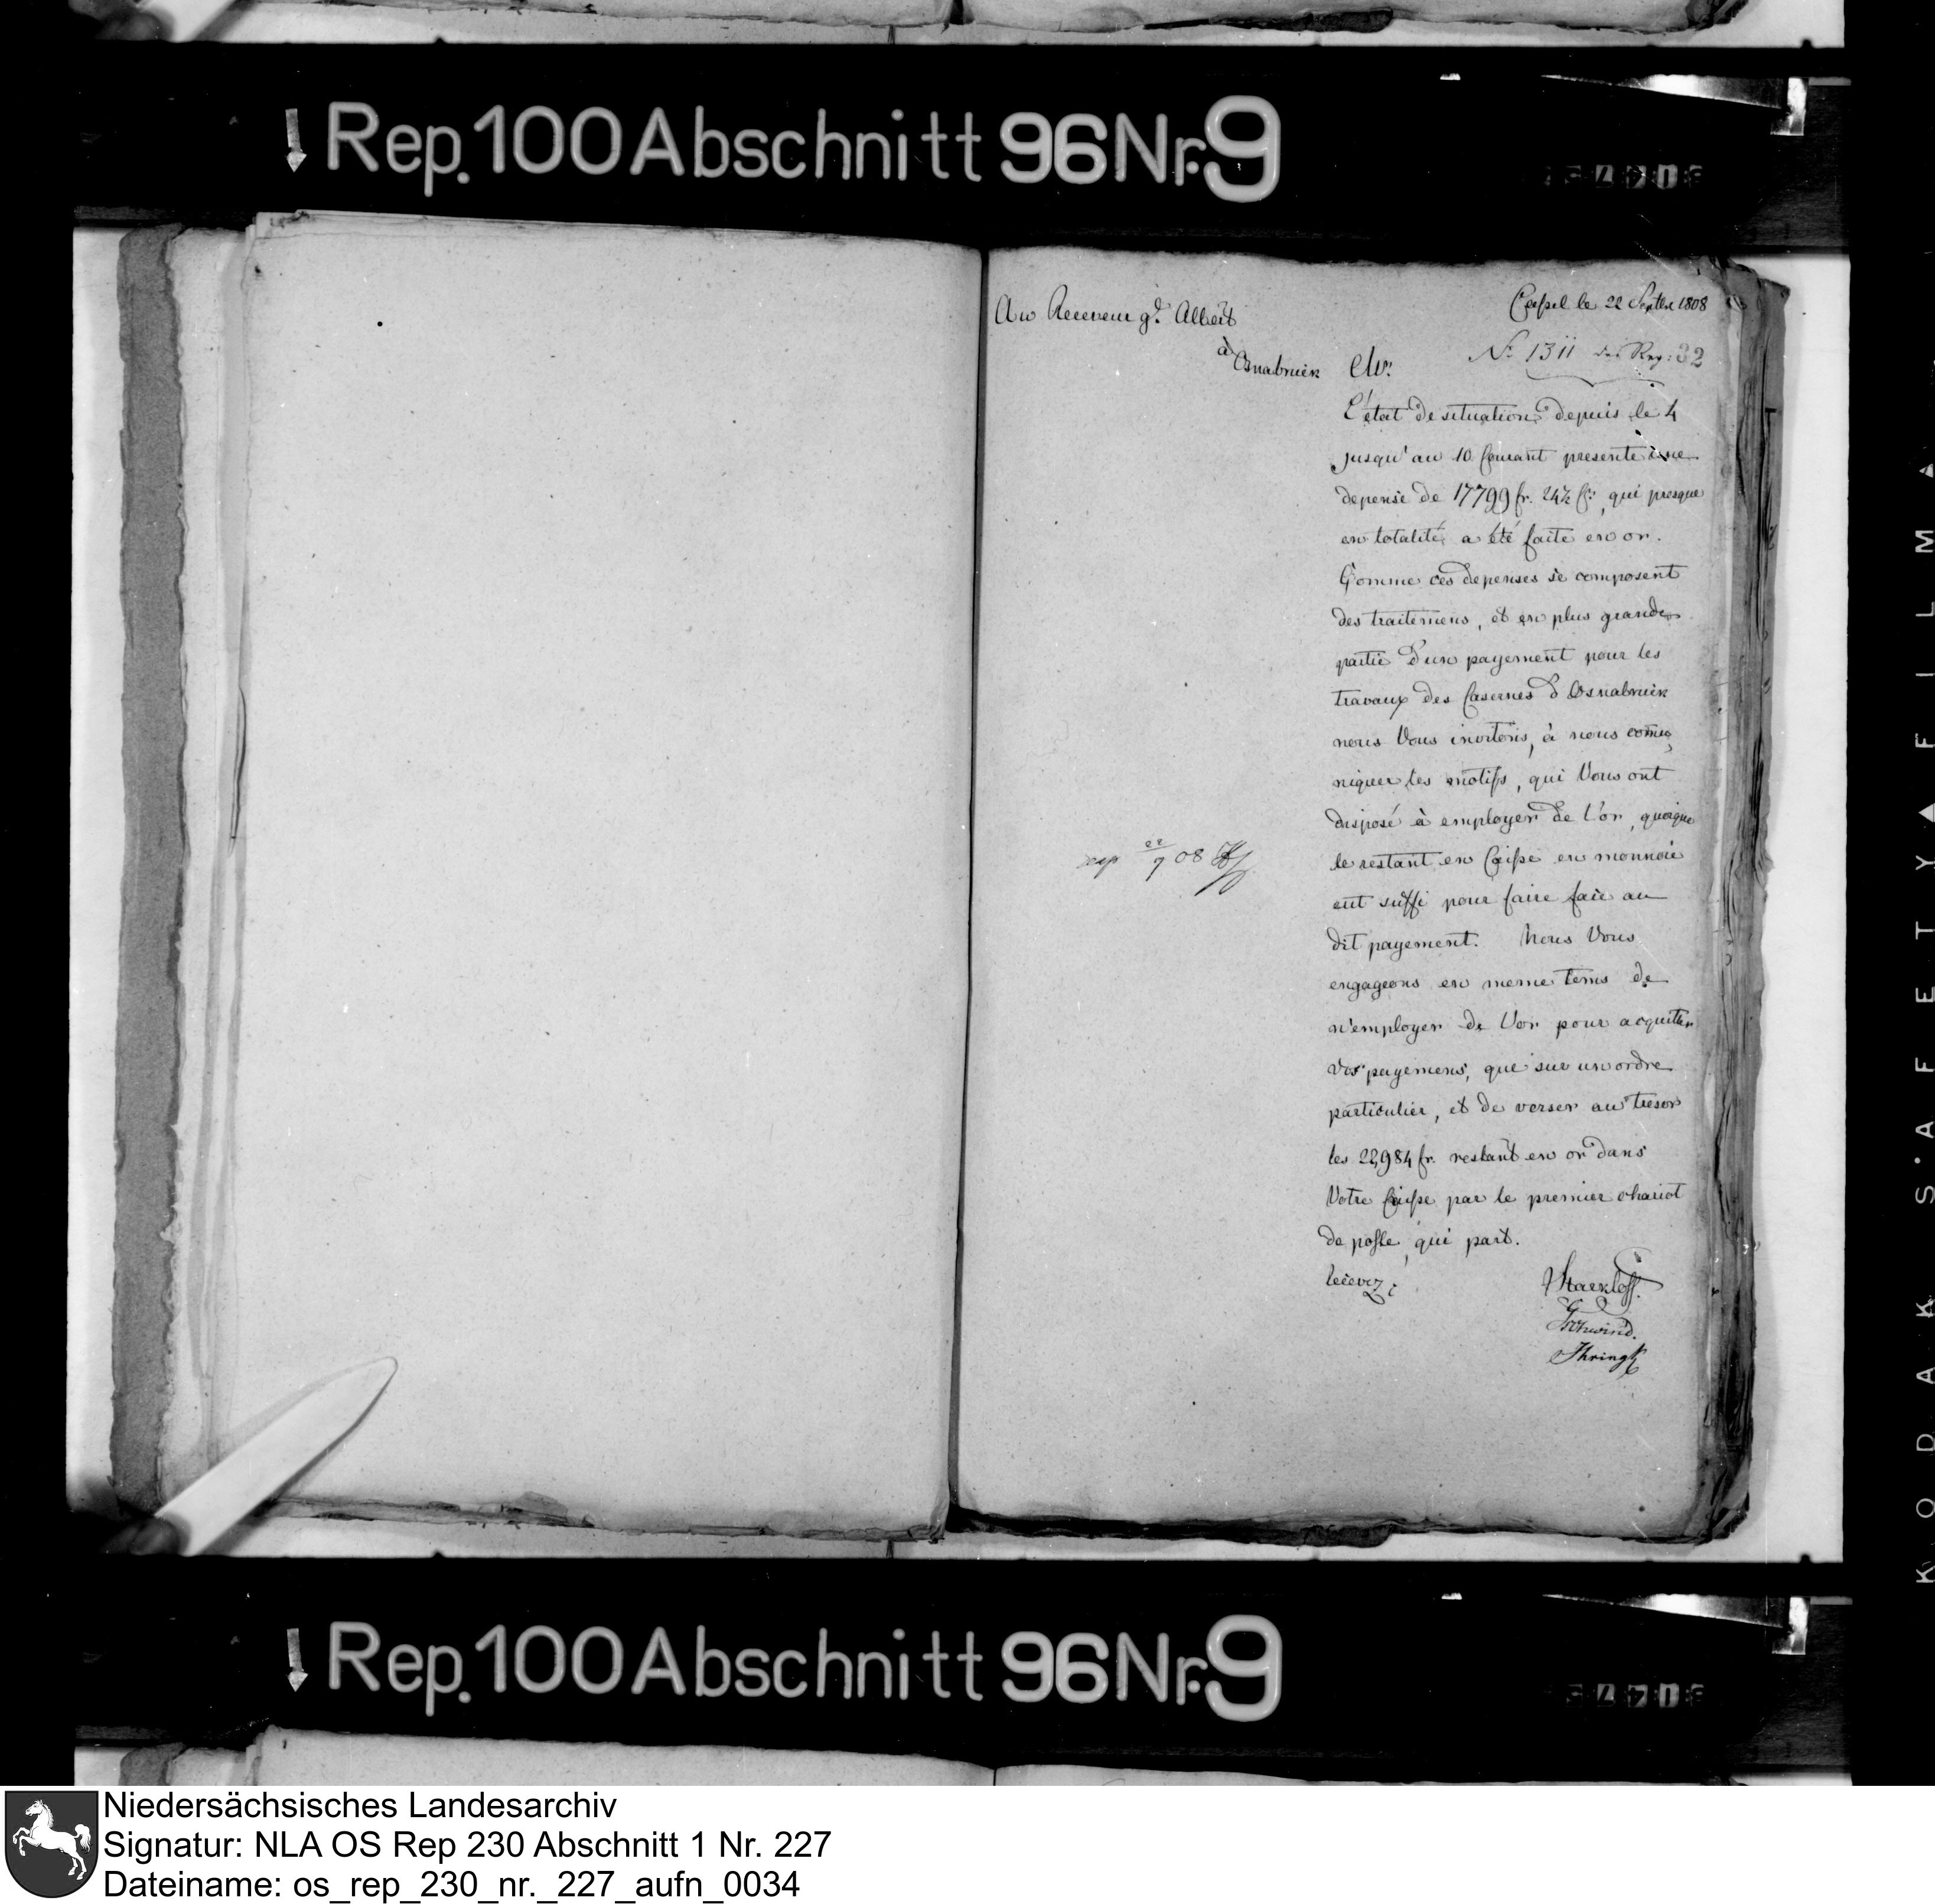 Rep. 100 Abschnitt 96 Nr. 9
Au Receveur g.l Albert
à Osnabruck
Cassel le 22 Septbre 1808
N.° 1311 des Reg:
32
Mr.
L'état de situation depuis le 4
jusqu'au 10 Courant presente une
depense de 17799 fr. 24½ Cs, qui presque
en totalité a été faite en or.
Comme ces depenses se composent
des traitemens, et en plus grande
partie d'un payement pour les
travaux des Casernes d'Osnabruck
nous Vous invitons, à nous comu,
niquer les motifs, qui Vous ont
disposé à employer de l'or, quoique
le restant en Caisse en monnoie
eut suffi pour faire face au
dit payement. Nous Vous
engageons en meme tems de
n'employer de l'or pour acquitter
vos payemens, que sur un ordre
particulier, et de verser au tresor
les 22,984 fr. restant en or dans
Votre Caisse par le premier chariot
de poste, qui part.
Recevez
exp 22/9 08
Starkloff.
Schwind.
Ihringk
Rep. 100 Abschnitt 96 Nr. 9
KODAK S·A·F·E·T·Y ▲ FILM ▲
Niedersächsisches Landesarchiv
Signatur: NLA OS Rep 230 Abschnitt 1 Nr. 227
Dateiname: os_rep_230_nr._227_aufn_0034